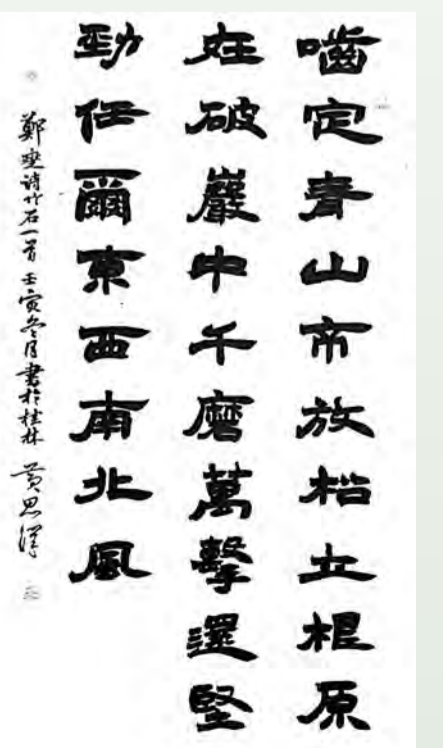 嚙定青山不放松立根原
在破巖中千磨萬擊還堅
勁任爾東西南北風
鄭燮詩竹石一首 壬寅冬月書於桂林 黄思